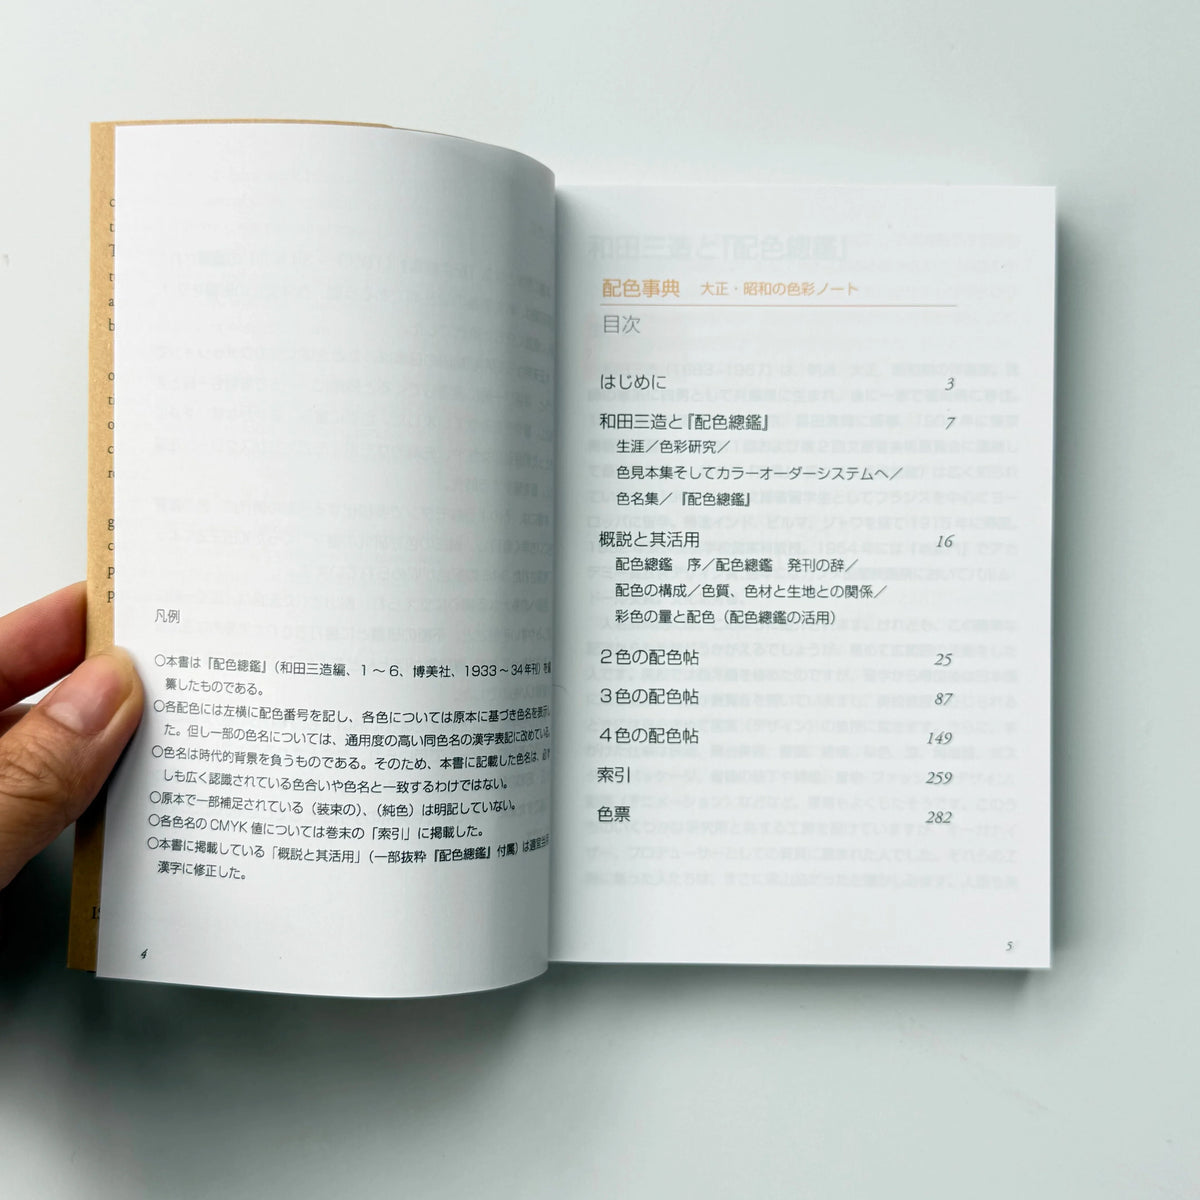 凡例
○本書は『配色總鑑』(和田三造編、1～6、博美社、1933～34年刊)を編
纂したものである。
○各配色には左横に配色番号を記し、各色については原本に基づき色名を表示し
た。但し一部の色名については、通用度の高い同色名の漢字表記に改めている。
○色名は時代的背景を負うものである。そのため、本書に記載した色名は、必ず
しも広く認識されている色合いや色名と一致するわけではない。
○原本で一部補足されている(装束の)、(純色)は明記していない。
○各色名のCMYK値については巻末の「索引」に掲載した。
○本書に掲載している「概説と其活用」(一部抜粋『配色總鑑』付属)は適宜当用
漢字に修正した。
4
配色事典 大正・昭和の色彩ノート
目次
はじめに 3
和田三造と『配色總鑑』 7
生涯／色彩研究／
色見本集そしてカラーオーダーシステムへ／
色名集／『配色總鑑』
概説と其活用 16
配色總鑑 序／配色總鑑 発刊の辞／
配色の構成／色質、色材と生地との関係／
彩色の量と配色(配色總鑑の活用)
2色の配色帖 25
3色の配色帖 87
4色の配色帖 149
索引 259
色票 282
5